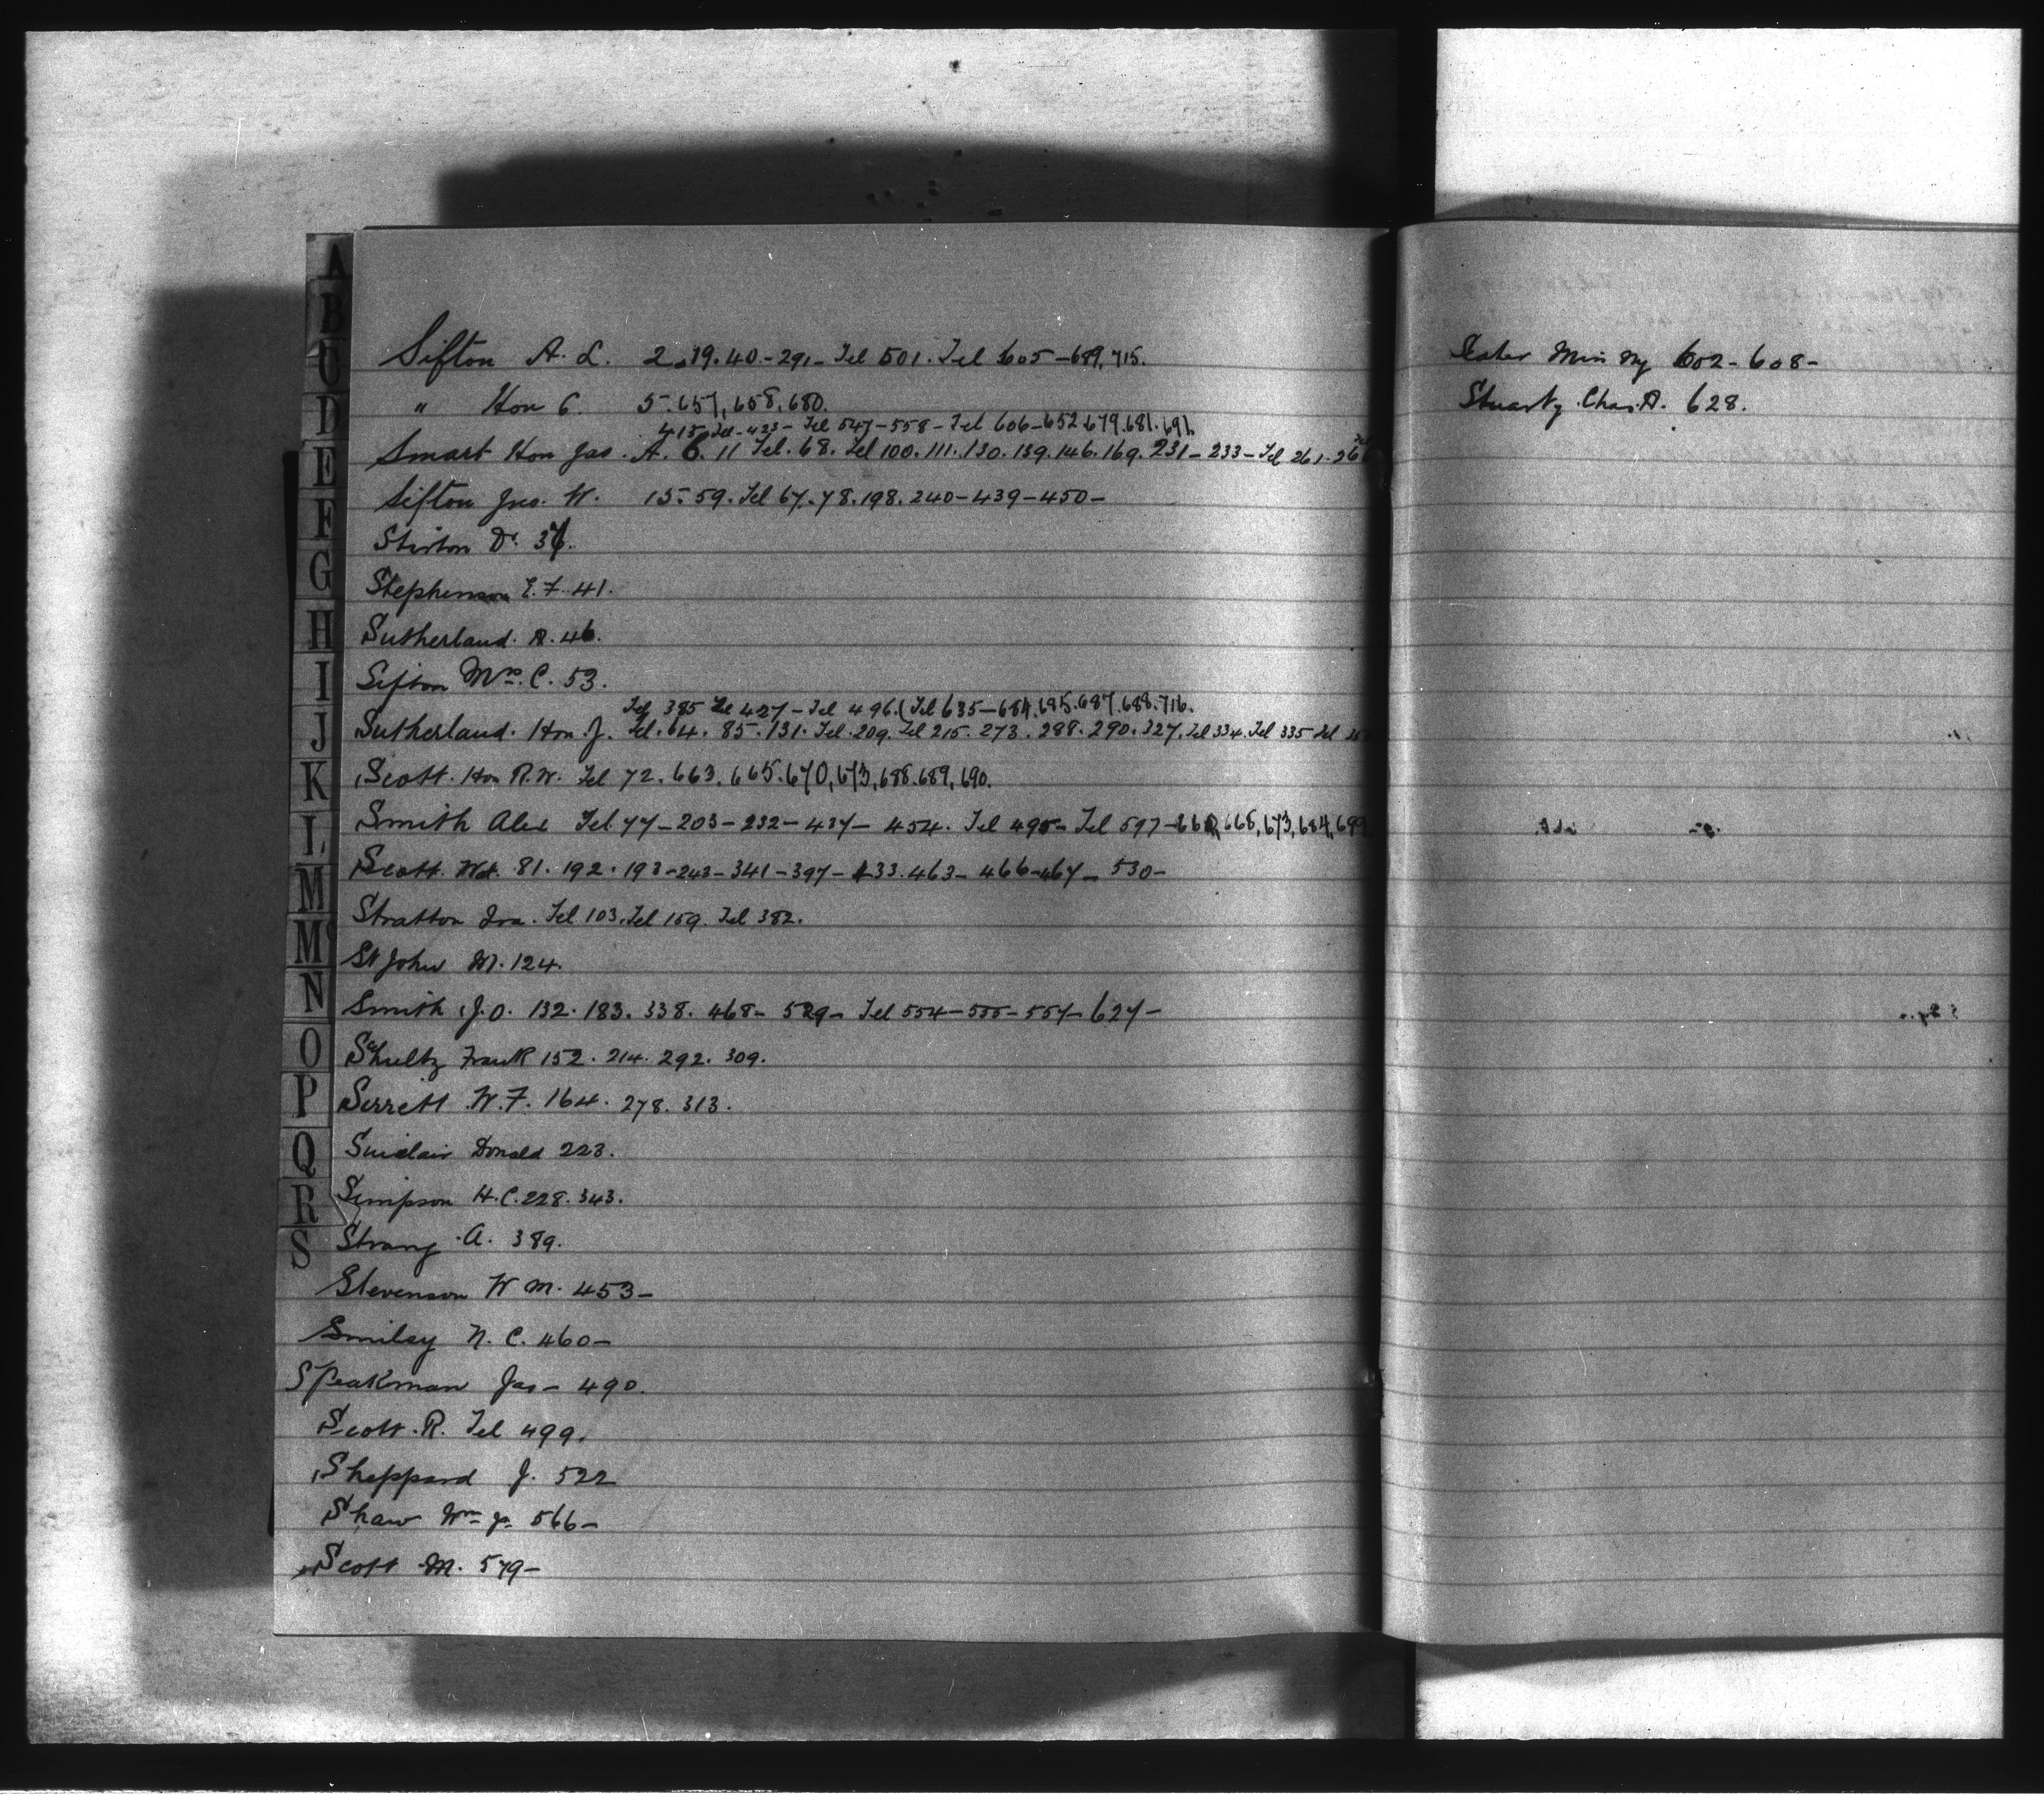 A
B
C
D
E
F
G
H
I
J
K
L
M
Mc
N
O
P
Q
R
S
Sifton A. L. 2.19.40-291-Tel 501. Tel 605-689,715.
" Hon C. 5.657,658,680.
415 Tel-423- Tel 547-558-Tel 606-652.679.681.691.
Smart Hon Jas. A. 6. 11 Tel. 68. Tel 100.111.130.139.146.169.231-233-Tel 261.266
Sifton Jno. W. 15.59. Tel 67.78.198.240-439-450-
Stirton Dr.
Stephenson E. F. 41.
Sutherland. R. 46.
Sifton Mrs. C. 53.
Tel 385 Tel 427-Tel 496. (Tel 635-684,685.687.688.716.
Sutherland. Hon. J. Tel. 64. 85.131. Tel. 209. Tel 215. 273. 288. 290. 327. Tel 334. Tel 335 Tel
Scott. Hon R. W. Tel 72. 663. 665. 670, 673, 688. 689, 690.
Smith Alex Tel. 77-203-232-437-454. Tel 495-Tel 597- 668, 673, 684, 699
Scott. Wd. 81. 192. 193-243-341-397-433. 463-466-467-530-
Stratton Ira. Tel 103. Tel 159. Tel 382.
St John M. 124.
Smith J. O. 132. 183. 338. 468- 529- Tel 554-555-557-627-
Schultz Frank 152. 214. 292. 309.
Serrett W. F. 164. 278. 313.
Sinclair Donald 223.
Simpson H. C. 228. 343.
Strang A. 389.
Stevenson W M. 453-
Smiley N. C. 460-
Speakman Jas- 490.
Scott. R. Tel 499.
Sheppard J. 522
Shaw Wm Jr 566-
Scott M. 579-
Slater Min Ny 602-608-
Stuart, Chas. A. 628.